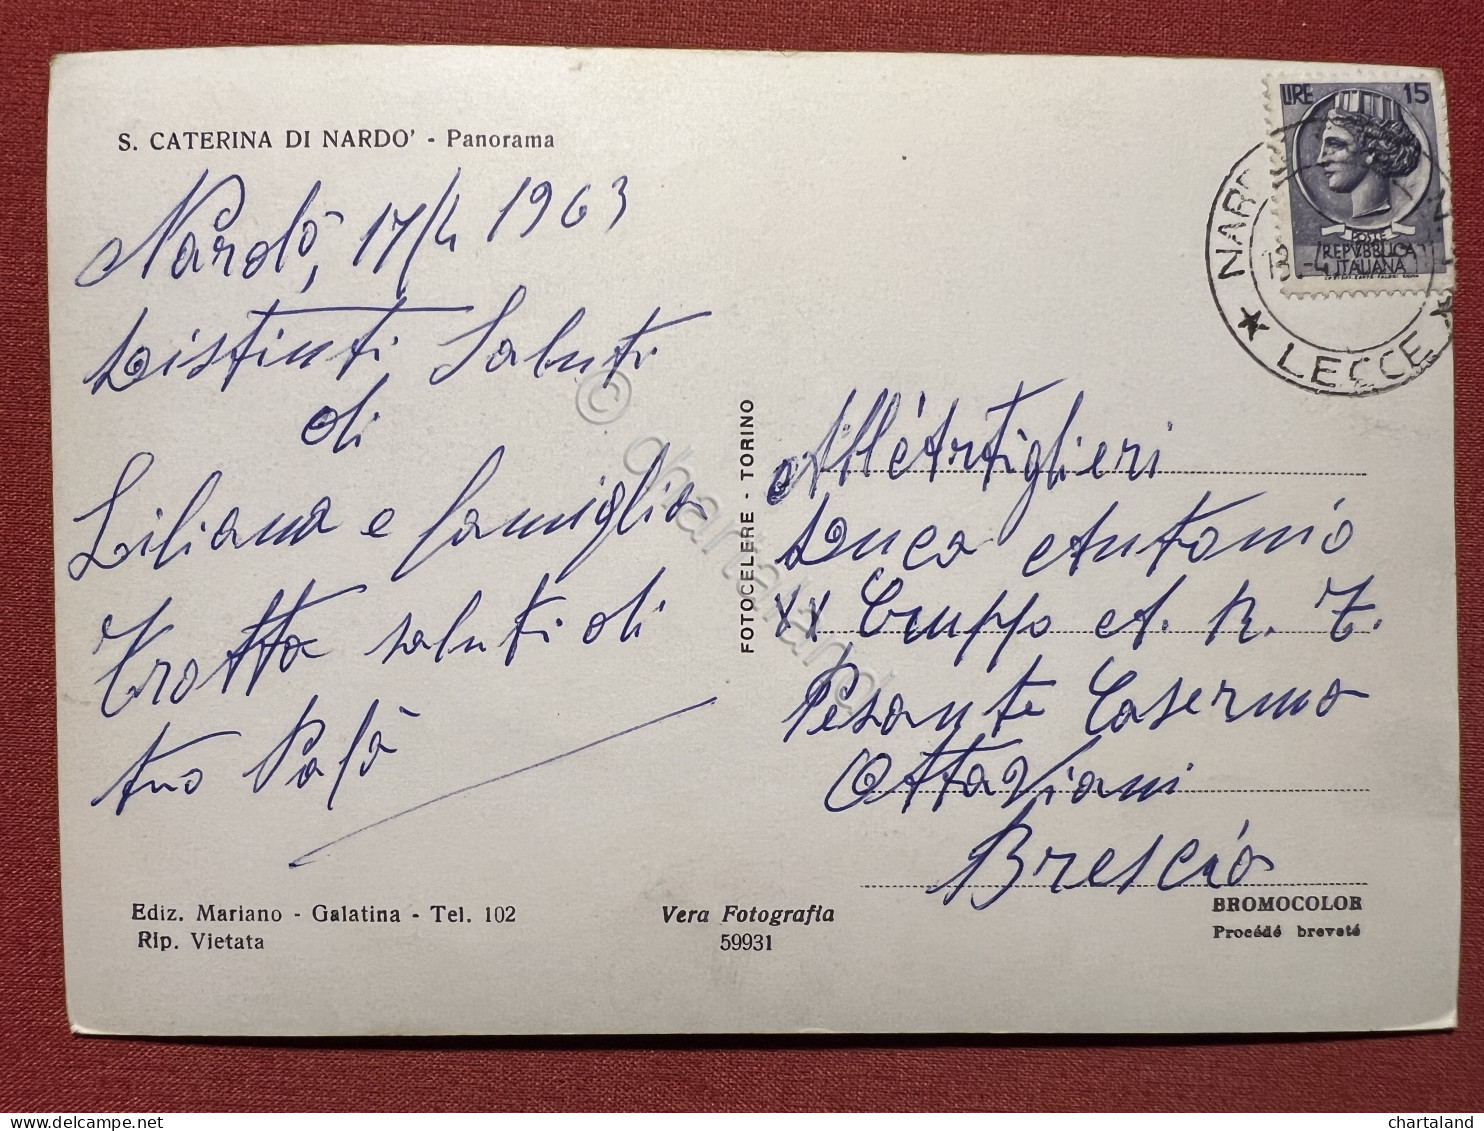 S. CATERINA DI NARDO' - Panorama
Nardò, 17/4 1963
Distinti Saluti
di
Liliana e famiglia
Trotta saluti di
tuo Papà
Ediz. Mariano - Galatina - Tel. 102
Rip. Vietata
Vera Fotografia
59931
FOTOCELERE - TORINO
LIRE 15
POSTE
REPVBBLICA
ITALIANA
NARDO
LECCE
All'Artiglieri
Duca Antonio
XX Gruppo A. R. T.
Pesante Caserma
Ottaviani
Brescia
BROMOCOLOR
Procédé breveté
© chartaland
chartaland